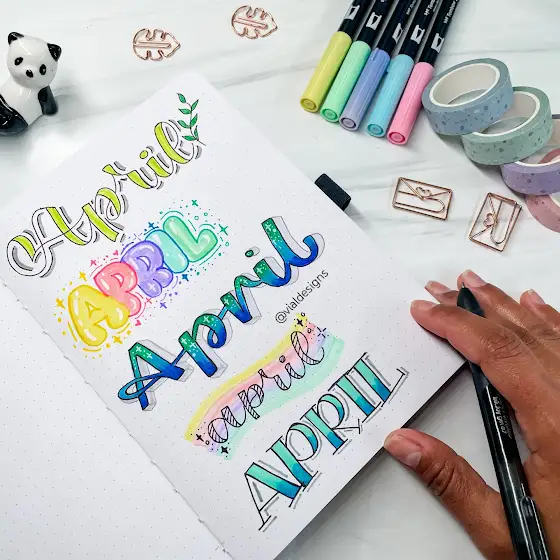 April
APRIL
April
@vialdesigns
april
APRIL